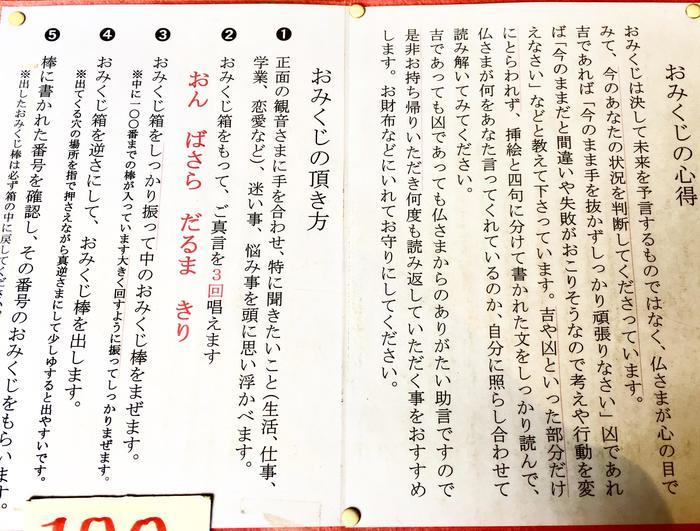 おみくじの心得
おみくじは決して未来を予言するものではなく、仏さまが心の目で
みて、今のあなたの状況を判断してくださっています。
吉であれば「今のまま手を抜かずしっかり頑張りなさい」凶であれ
ば「今のままだと間違いや失敗がおこりそうなので考えや行動を変
えなさい」などと教えて下さっています。吉や凶といった部分だけ
にとらわれず、挿絵と四句に分けて書かれた文をしっかり読んで、
仏さまが何をあなた言ってくれているのか、自分に照らし合わせて
読み解いてみてください。
吉であっても凶であっても仏さまからのありがたい助言ですので
是非お持ち帰りいただき何度も読み返していただく事をおすすめ
します。お財布などにいれてお守りにしてください。
おみくじの頂き方
❶ 正面の観音さまに手を合わせ、特に聞きたいこと(生活、仕事、
学業、恋愛など)、迷い事、悩み事を頭に思い浮かべます。
❷ おみくじ箱をもって、ご真言を3回唱えます
おん ばさら だるま きり
❸ おみくじ箱をしっかり振って中のおみくじ棒をまぜます。
※中に一〇〇番までの棒が入っています大きく回すように振ってしっかりまぜます。
❹ おみくじ箱を逆さにして、おみくじ棒を出します。
※出てくる穴の場所を指で押さえながら真逆さまにして少しゆすると出やすいです。
❺ 棒に書かれた番号を確認し、その番号のおみくじをもらいます。
※出したおみくじ棒は必ず箱の中に戻してくださ